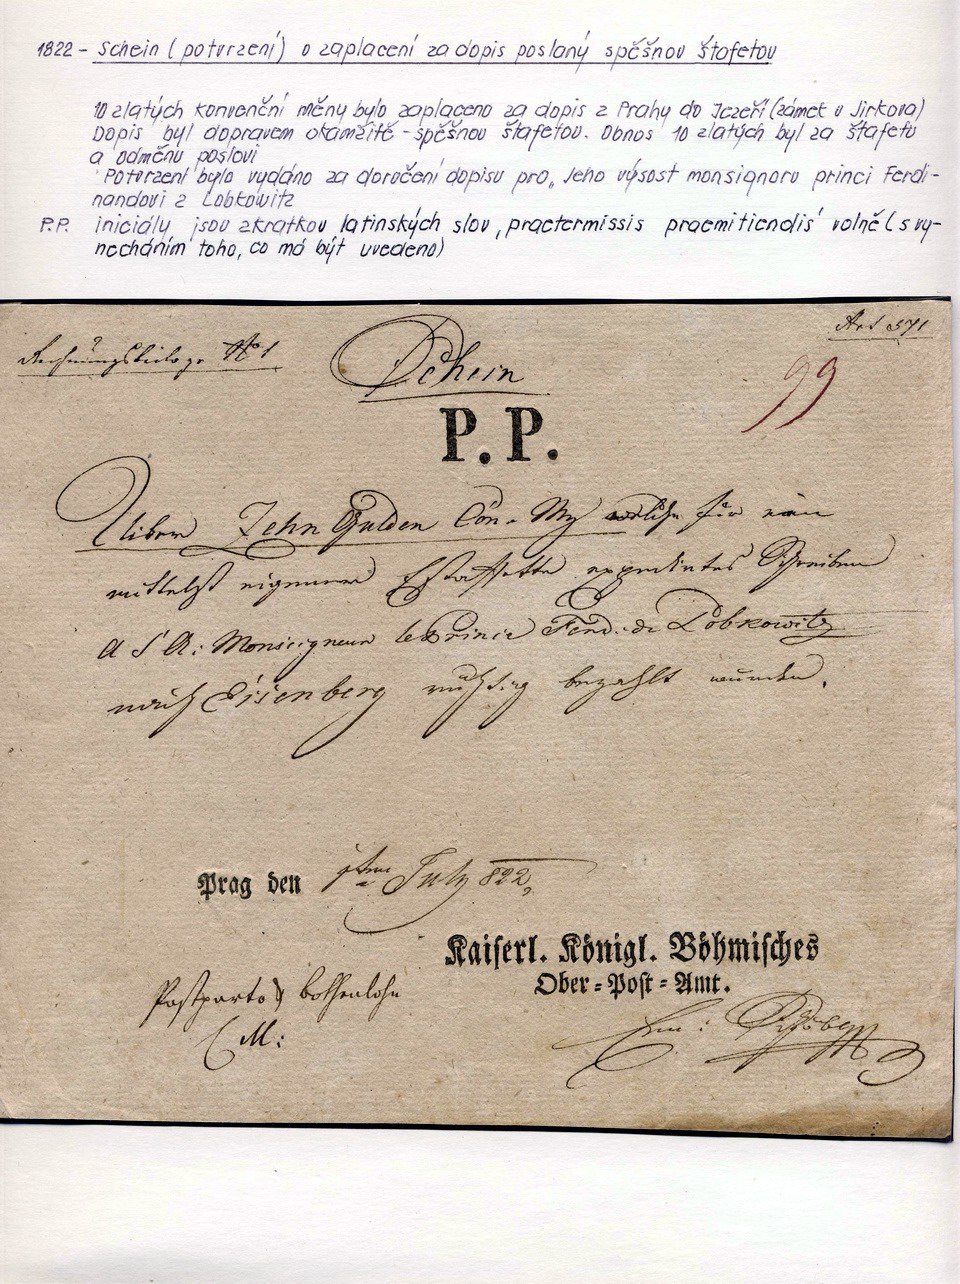 1822 - Schein (potvrzení) o zaplacení za dopis poslaný spěšnou štafetou
10 zlatých konvenční měny bylo zaplaceno za dopis z Prahy do Jezeří (zámek u Jirkova)
Dopis byl dopravem okamžitě - spěšnou štafetou. Obnos 10 zlatých byl za štafetu
a odměnu poslovi
Potvrzení bylo vydáno za doručení dopisu pro „Jeho výsost monsignoru princi Ferdi-
nandovi z Lobkowitz
P.P. iniciály jsou zkratkou latinských slov ‚praetermissis praemitiendis' volně (s vy-
necháním toho, co má být uvedeno)
Rechnungsbeilage No 1
Art 571
Schein
99
P.P.
Uiber Zehn Gulden Con. Mz welche für ein
mittelst eigener Estaffette expedirtes Schreiben
A S A: Monseigneur le Prince Ferd: de Lobkowitz
nach Eisenberg richtig bezahlt wurden.
Prag den July 822
Kaiserl. Königl. Böhmisches
Ober-Post-Amt.
Postporto Bothenlohn
C M: